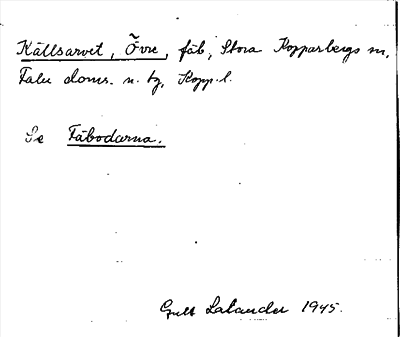 Källsarvet, Övre, fäb, Stora Kopparbergs sn,
Falu doms. n. tg, Kopp. l.
Se Fäbodarna.
Gull Lalander 1945.